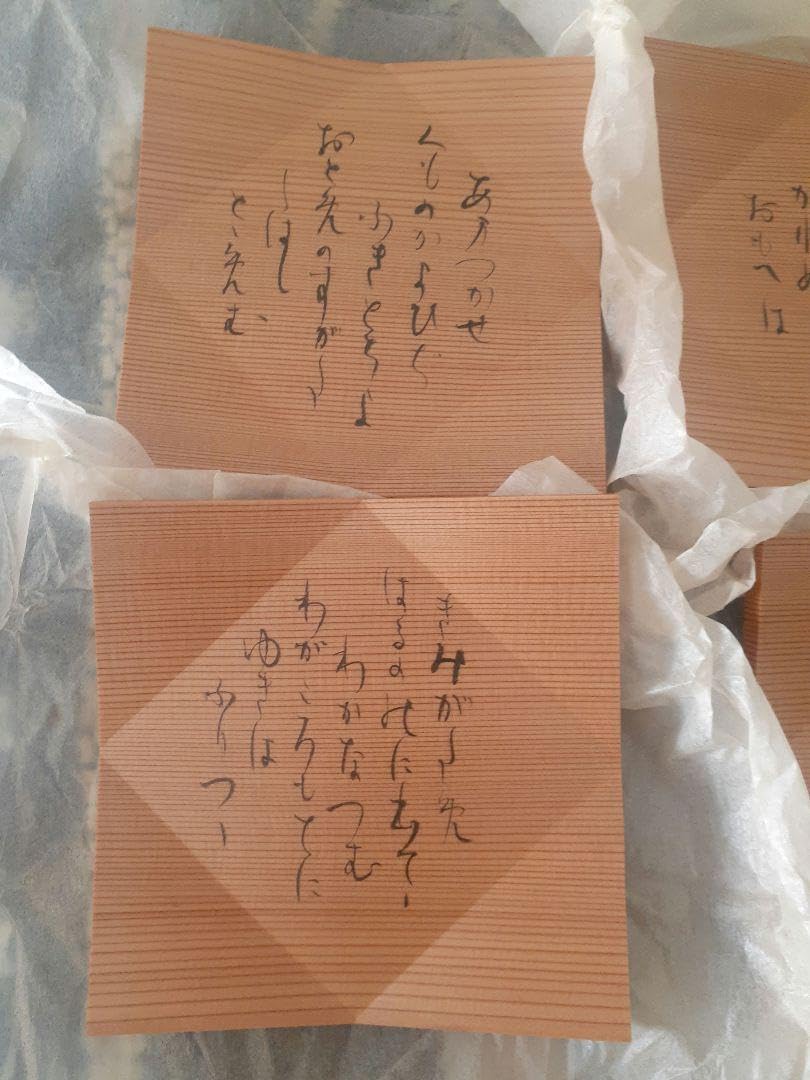 あまつかせ
くものかよひち
ふきとちよ
おとめのすがた
しはし
とゝめむ
おもへは
きみがため
はるののに出てゝ
わかなつむ
わがころもてに
ゆきは
ふりつゝ